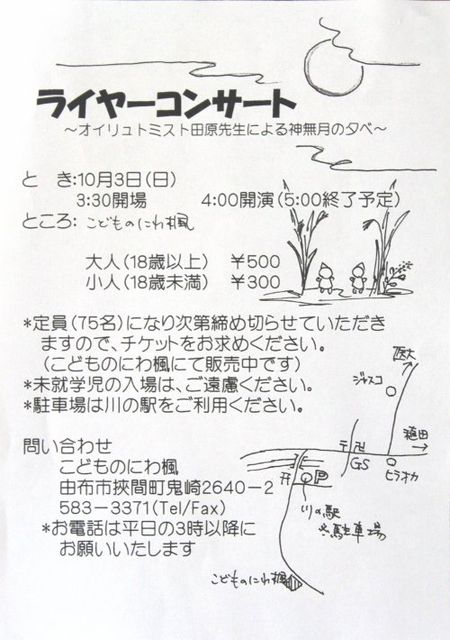 ライヤーコンサート
～オイリュトミスト田原先生による神無月の夕べ～
と　き:10月3日(日)
3:30開場　4:00開演(5:00終了予定)
ところ: こどものにわ楓
大人(18歳以上)　￥500
小人(18歳未満)　￥300
*定員(75名)になり次第締め切らせていただき
ますので、チケットをお求めください。
(こどものにわ楓にて販売中です)
*未就学児の入場は、ご遠慮ください。
*駐車場は川の駅をご利用ください。
医大
ジャスコ
問い合わせ
こどものにわ楓
由布市挾間町鬼崎2640－2
583－3371(Tel/Fax)
*お電話は平日の3時以降に
お願いいたします
〒 卍
GS
ヒラオカ
P
川の駅
駐車場
こどものにわ楓